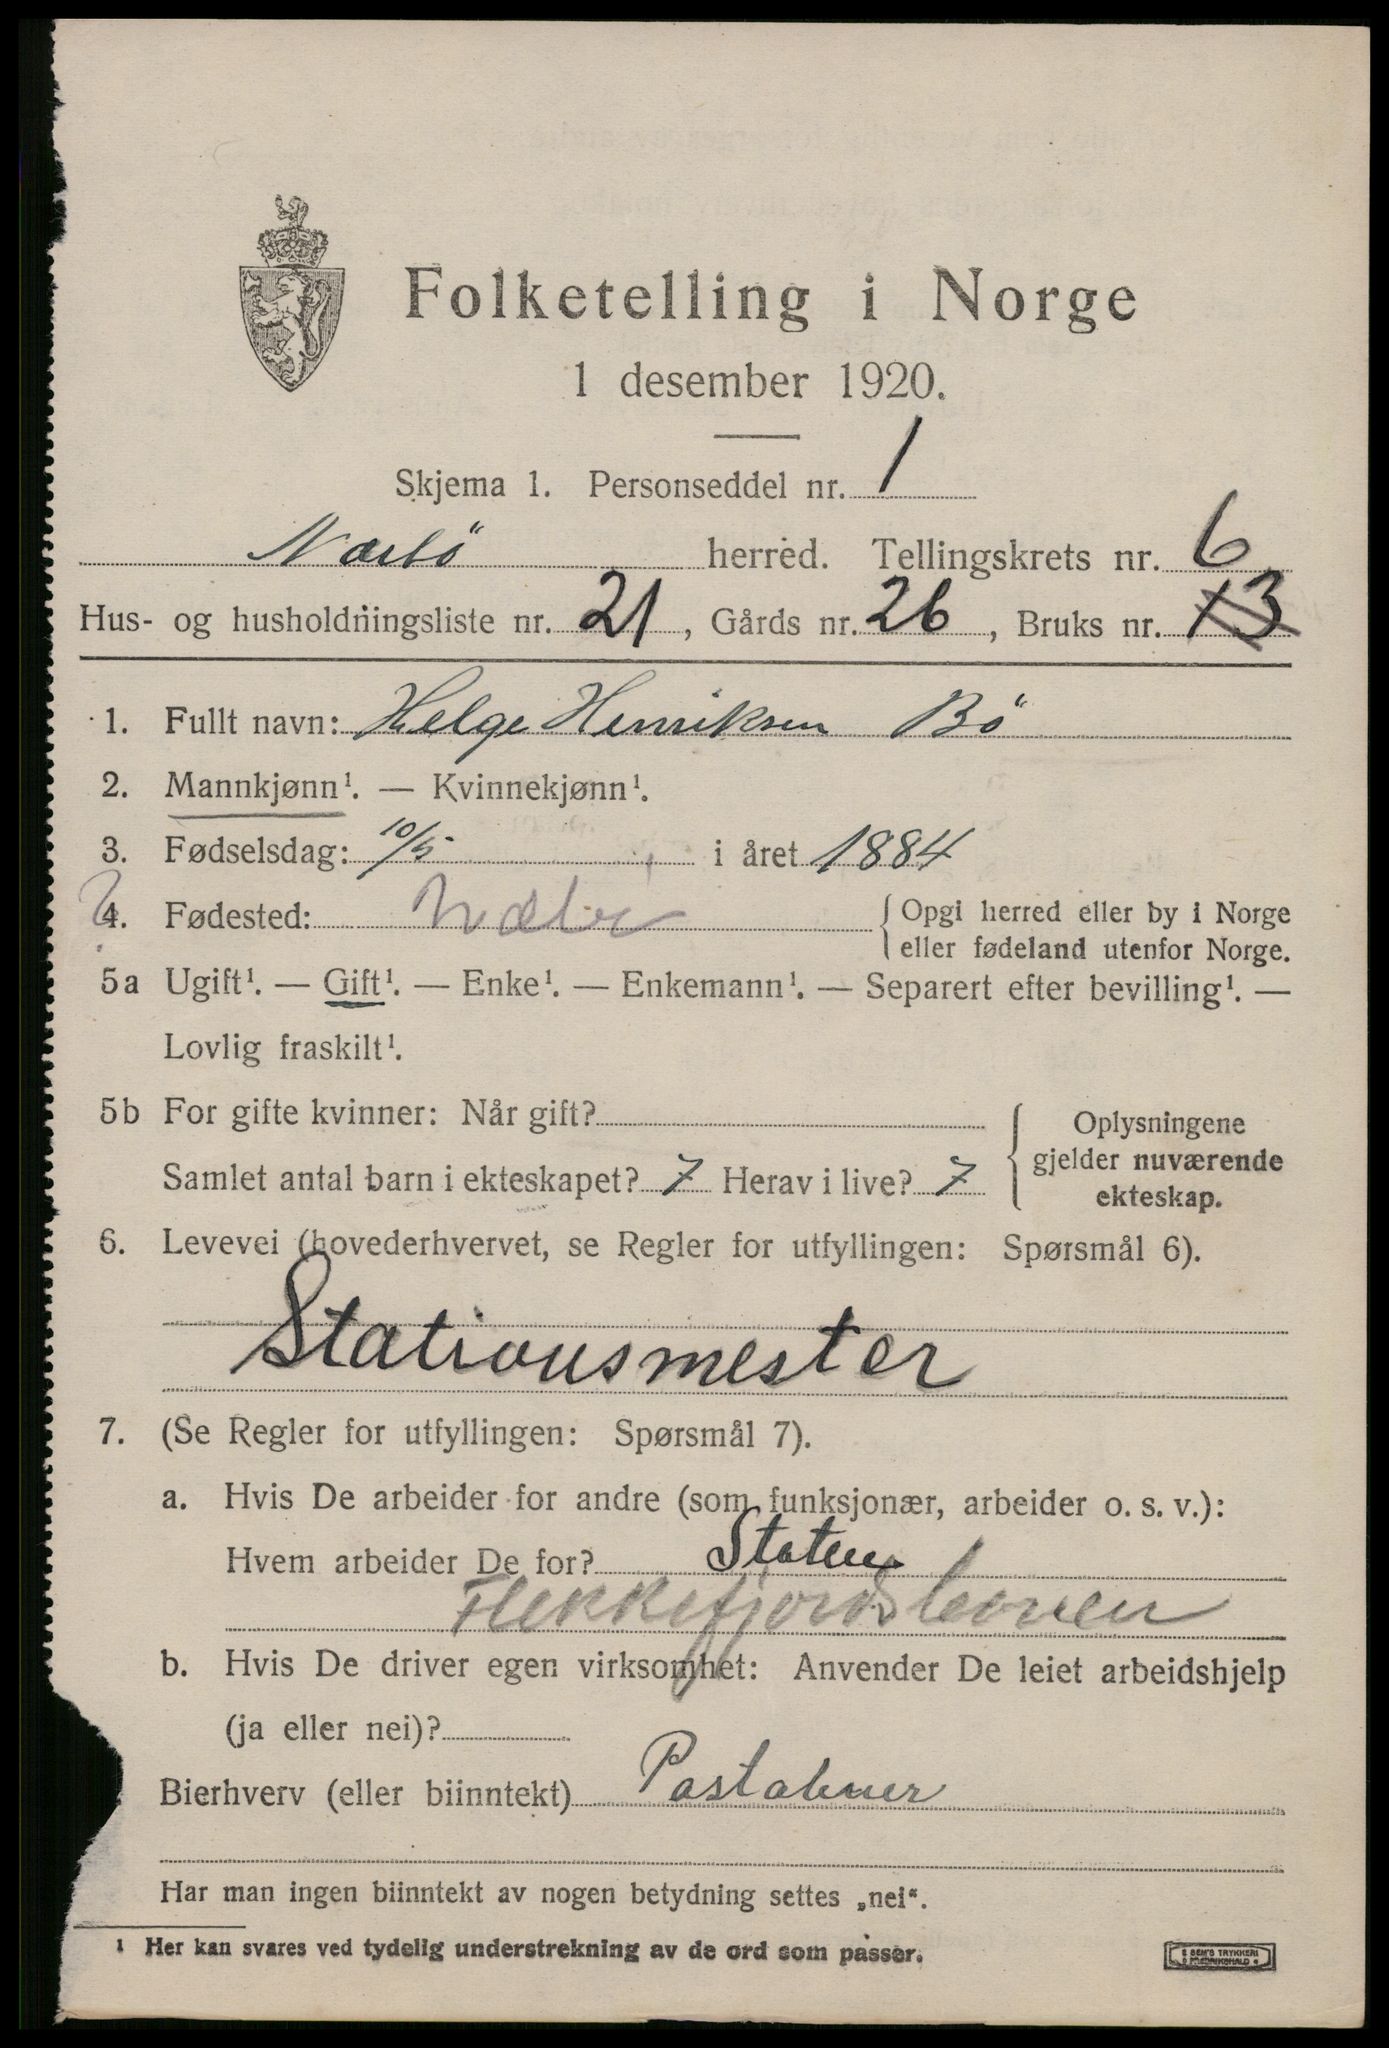 Folketelling i Norge
1 desember 1920.
Skjema 1. Personseddel nr. 1
Nærbö herred. Tellingskrets nr. 6
Hus- og husholdningsliste nr. 21, Gårds nr. 26, Bruks nr. 13
1. Fullt navn: Helge Henriksen Bö
2. Mannkjønn¹. — Kvinnekjønn¹.
3. Fødselsdag: 10/5 i året 1884
? 4. Fødested: { Opgi herred eller by i Norge
eller fødeland utenfor Norge.
5a Ugift¹. — Gift¹. — Enke¹. — Enkemann¹. — Separert efter bevilling¹. —
Lovlig fraskilt¹.
5b For gifte kvinner: Når gift? { Oplysningene
gjelder nuværende
Samlet antal barn i ekteskapet? 7 Herav i live? 7
ekteskap.
6. Levevei (hovederhvervet, se Regler for utfyllingen: Spørsmål 6).
Stationsmester
7. (Se Regler for utfyllingen: Spørsmål 7).
a. Hvis De arbeider for andre (som funksjonær, arbeider o. s. v.):
Hvem arbeider De for? Staten
Flekkefjordsbanen
b. Hvis De driver egen virksomhet: Anvender De leiet arbeidshjelp
(ja eller nei)?
Bierhverv (eller biinntekt) Postabner
Har man ingen biinntekt av nogen betydning settes „nei“.
¹ Her kan svares ved tydelig understrekning av de ord som passer.
E SEM'S TRYKKERI
FREDRIKSHALD